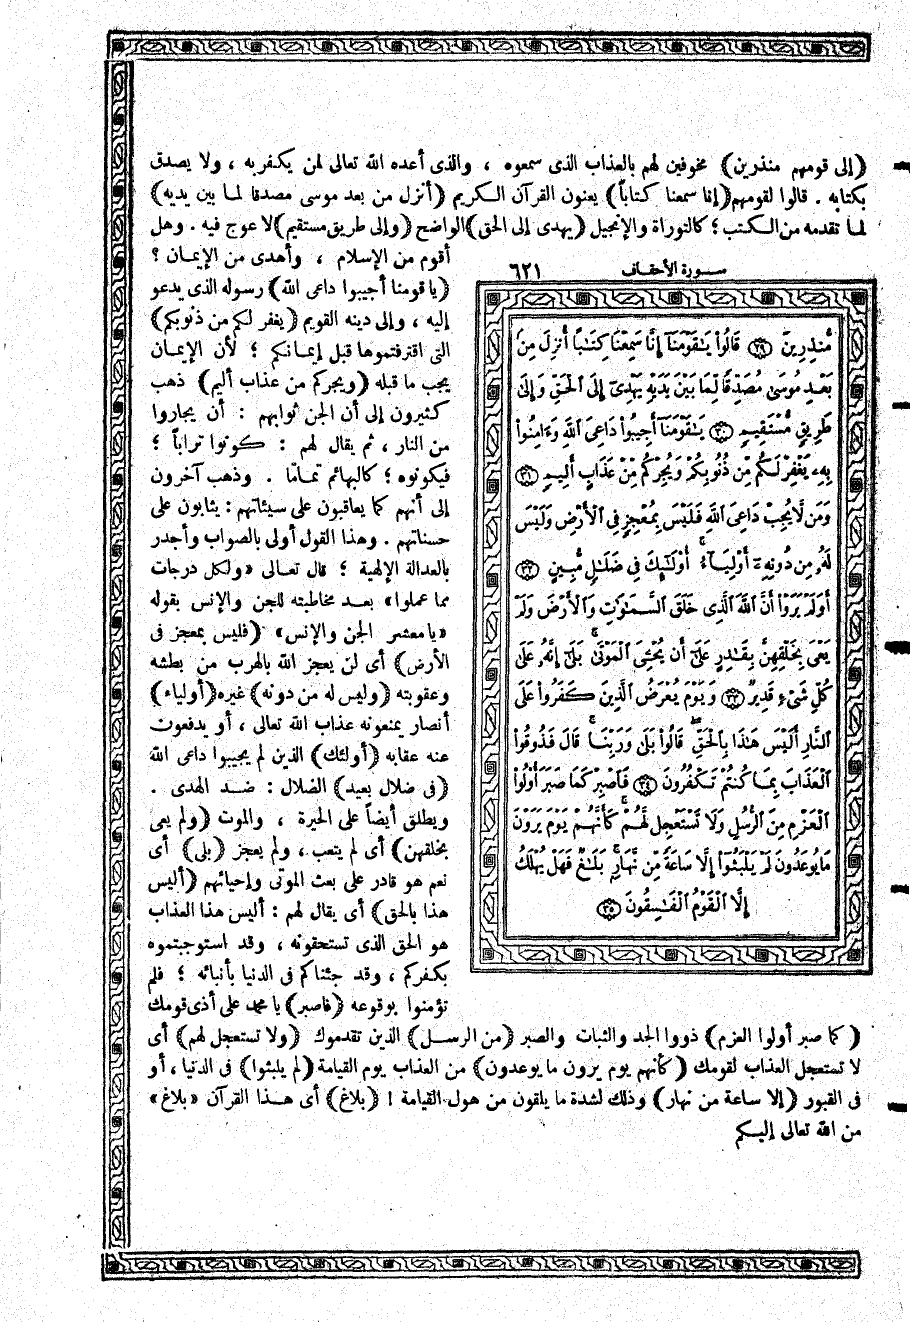 (إلى قومهم منذرين) مخوفين لهم بالعذاب الذى سمعوه ، والذى أعده الله تعالى لمن يكفر به ، ولا يصدق
بكتابه . قالوا لقومهم (إنا سمعنا كتاباً) يعنون القرآن الكريم (أنزل من بعد موسى مصدقا لما بين يديه)
لما تقدمه من الكتب ؛ كالتوراة والإنجيل (يهدى إلى الحق) الواضح (وإلى طريق مستقيم) لا عوج فيه . وهل
أقوم من الإسلام ، وأهدى من الإيمان ؟
(يا قومنا أجيبوا داعى الله) رسوله الذى يدعو
إليه ، وإلى دينه القويم (يغفر لكم من ذنوبكم)
التى اقترفتموها قبل إيمانكم ؛ لأن الإيمان
يجب ما قبله (ويجركم من عذاب أليم) ذهب
كثيرون إلى أن الجن ثوابهم : أن يجاروا
من النار ، ثم يقال لهم : كونوا تراباً ؛
فيكونوه ؛ كالبهائم تماما . وذهب آخرون
إلى أنهم كما يعاقبون على سيئاتهم : يثابون على
حسناتهم . وهذا القول أولى بالصواب وأجدر
بالعدالة الإلهية ؛ قال تعالى «ولكل درجات
مما عملوا» بعد مخاطبته للجن والإنس بقوله
«يا معشر الجن والإنس» (فليس بمعجز فى
الأرض) أى لن يعجز الله بالهرب من بطشه
وعقوبته (وليس له من دونه) غيره (أولياء)
أنصار يمنعونه عذاب الله تعالى ، أو يدفعون
عنه عقابه (أولئك) الذين لم يجيبوا داعى الله
(فى ضلال بعيد) الضلال : ضد الهدى .
ويطلق أيضاً على الحيرة ، والموت (ولم يعى
بخلقهن) أى لم يتعب ، ولم يعجز (بلى) أى
نعم هو قادر على بعث الموتى وإحيائهم (أليس
هذا بالحق) أى يقال لهم : أليس هذا العذاب
هو الحق الذى تستحقونه ، وقد استوجبتموه
بكفركم ، وقد جئناكم فى الدنيا بأنبائه ؛ فلم
تؤمنوا بوقوعه (فاصبر) يا محمد على أذى قومك
سورة الأحقاف ٦٢١
مُّنذِرِينَ ۝٢٩ قَالُوا۟ يَٰقَوْمَنَآ إِنَّا سَمِعْنَا كِتَٰبًا أُنزِلَ مِنۢ
بَعْدِ مُوسَىٰ مُصَدِّقًا لِّمَا بَيْنَ يَدَيْهِ يَهْدِىٓ إِلَى ٱلْحَقِّ وَإِلَىٰ
طَرِيقٍ مُّسْتَقِيمٍ ۝٣٠ يَٰقَوْمَنَآ أَجِيبُوا۟ دَاعِىَ ٱللَّهِ وَءَامِنُوا۟
بِهِۦ يَغْفِرْ لَكُم مِّن ذُنُوبِكُمْ وَيُجِرْكُم مِّنْ عَذَابٍ أَلِيمٍ ۝٣١
وَمَن لَّا يُجِبْ دَاعِىَ ٱللَّهِ فَلَيْسَ بِمُعْجِزٍ فِى ٱلْأَرْضِ وَلَيْسَ
لَهُۥ مِن دُونِهِۦٓ أَوْلِيَآءُ ۚ أُو۟لَٰٓئِكَ فِى ضَلَٰلٍ مُّبِينٍ ۝٣٢
أَوَلَمْ يَرَوْا۟ أَنَّ ٱللَّهَ ٱلَّذِى خَلَقَ ٱلسَّمَٰوَٰتِ وَٱلْأَرْضَ وَلَمْ
يَعْىَ بِخَلْقِهِنَّ بِقَٰدِرٍ عَلَىٰٓ أَن يُحْـِۧىَ ٱلْمَوْتَىٰ ۚ بَلَىٰٓ إِنَّهُۥ عَلَىٰ
كُلِّ شَىْءٍ قَدِيرٌ ۝٣٣ وَيَوْمَ يُعْرَضُ ٱلَّذِينَ كَفَرُوا۟ عَلَى
ٱلنَّارِ أَلَيْسَ هَٰذَا بِٱلْحَقِّ ۖ قَالُوا۟ بَلَىٰ وَرَبِّنَا ۚ قَالَ فَذُوقُوا۟
ٱلْعَذَابَ بِمَا كُنتُمْ تَكْفُرُونَ ۝٣٤ فَٱصْبِرْ كَمَا صَبَرَ أُو۟لُوا۟
ٱلْعَزْمِ مِنَ ٱلرُّسُلِ وَلَا تَسْتَعْجِل لَّهُمْ ۚ كَأَنَّهُمْ يَوْمَ يَرَوْنَ
مَا يُوعَدُونَ لَمْ يَلْبَثُوٓا۟ إِلَّا سَاعَةً مِّن نَّهَارٍۭ ۚ بَلَٰغٌ ۚ فَهَلْ يُهْلَكُ
إِلَّا ٱلْقَوْمُ ٱلْفَٰسِقُونَ ۝٣٥
(كما صبر أولوا العزم) ذووا الجد والثبات والصبر (من الرسل) الذين تقدموك (ولا تستعجل لهم) أى
لا تستعجل العذاب لقومك (كأنهم يوم يرون ما يوعدون) من العذاب يوم القيامة (لم يلبثوا) فى الدنيا ، أو
فى القبور (إلا ساعة من نهار) وذلك لشدة ما يلقون من هول القيامة ! (بلاغ) أى هذا القرآن «بلاغ»
من الله تعالى إليكم